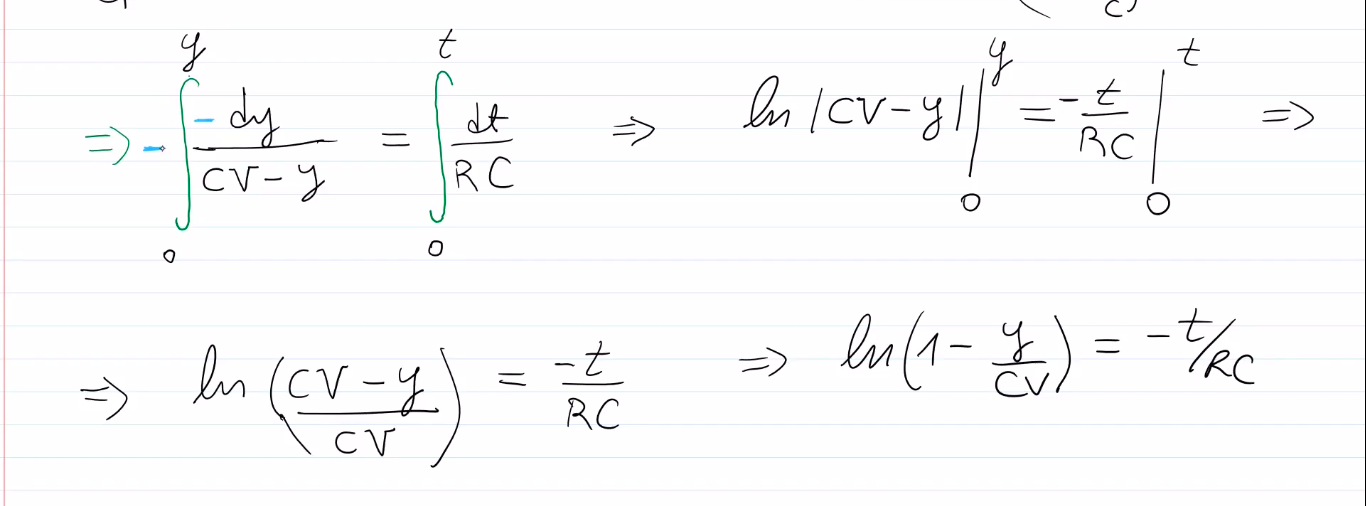 ⇒ -∫₀^y -dy/(CV-y) = ∫₀^t dt/RC ⇒ ln|CV-y| |₀^y = -t/RC |₀^t ⇒
⇒ ln((CV-y)/CV) = -t/RC ⇒ ln(1-y/CV) = -t/RC